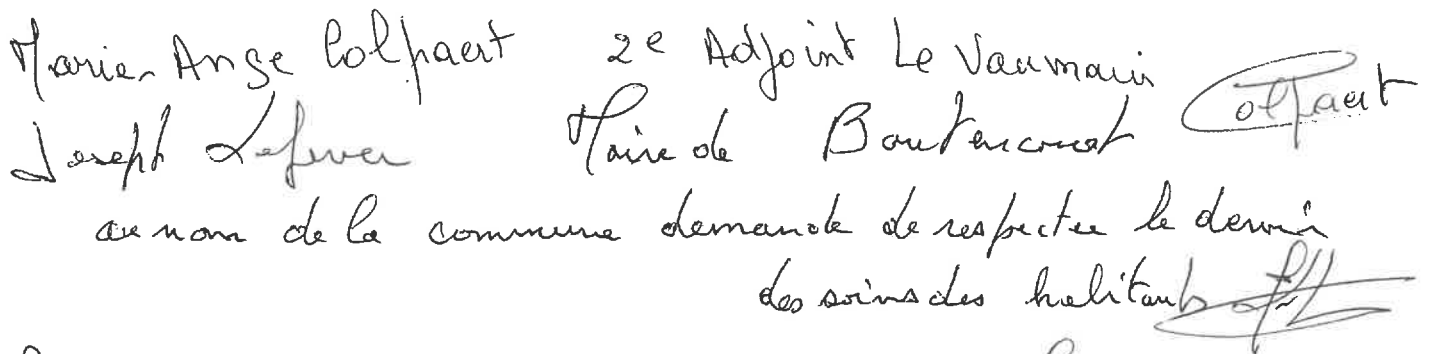 Marie-Ange Colpaert 2e Adjoint Le Vaumain Colpaert
Joseph Lefever Maire de Boutencourt
au nom de la commune demande de respecter le
des soins des habitants